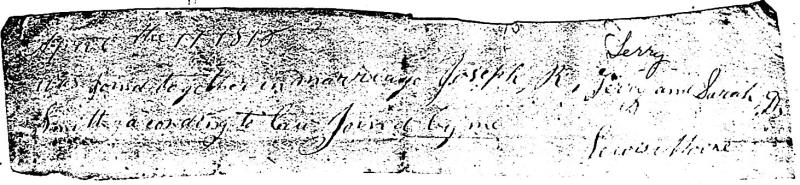 the 17 1818
Terry
was Joined together in marriage Joseph, K, Terry and Sarah, D,
Smith according to law Joined by me
Lewis Moore